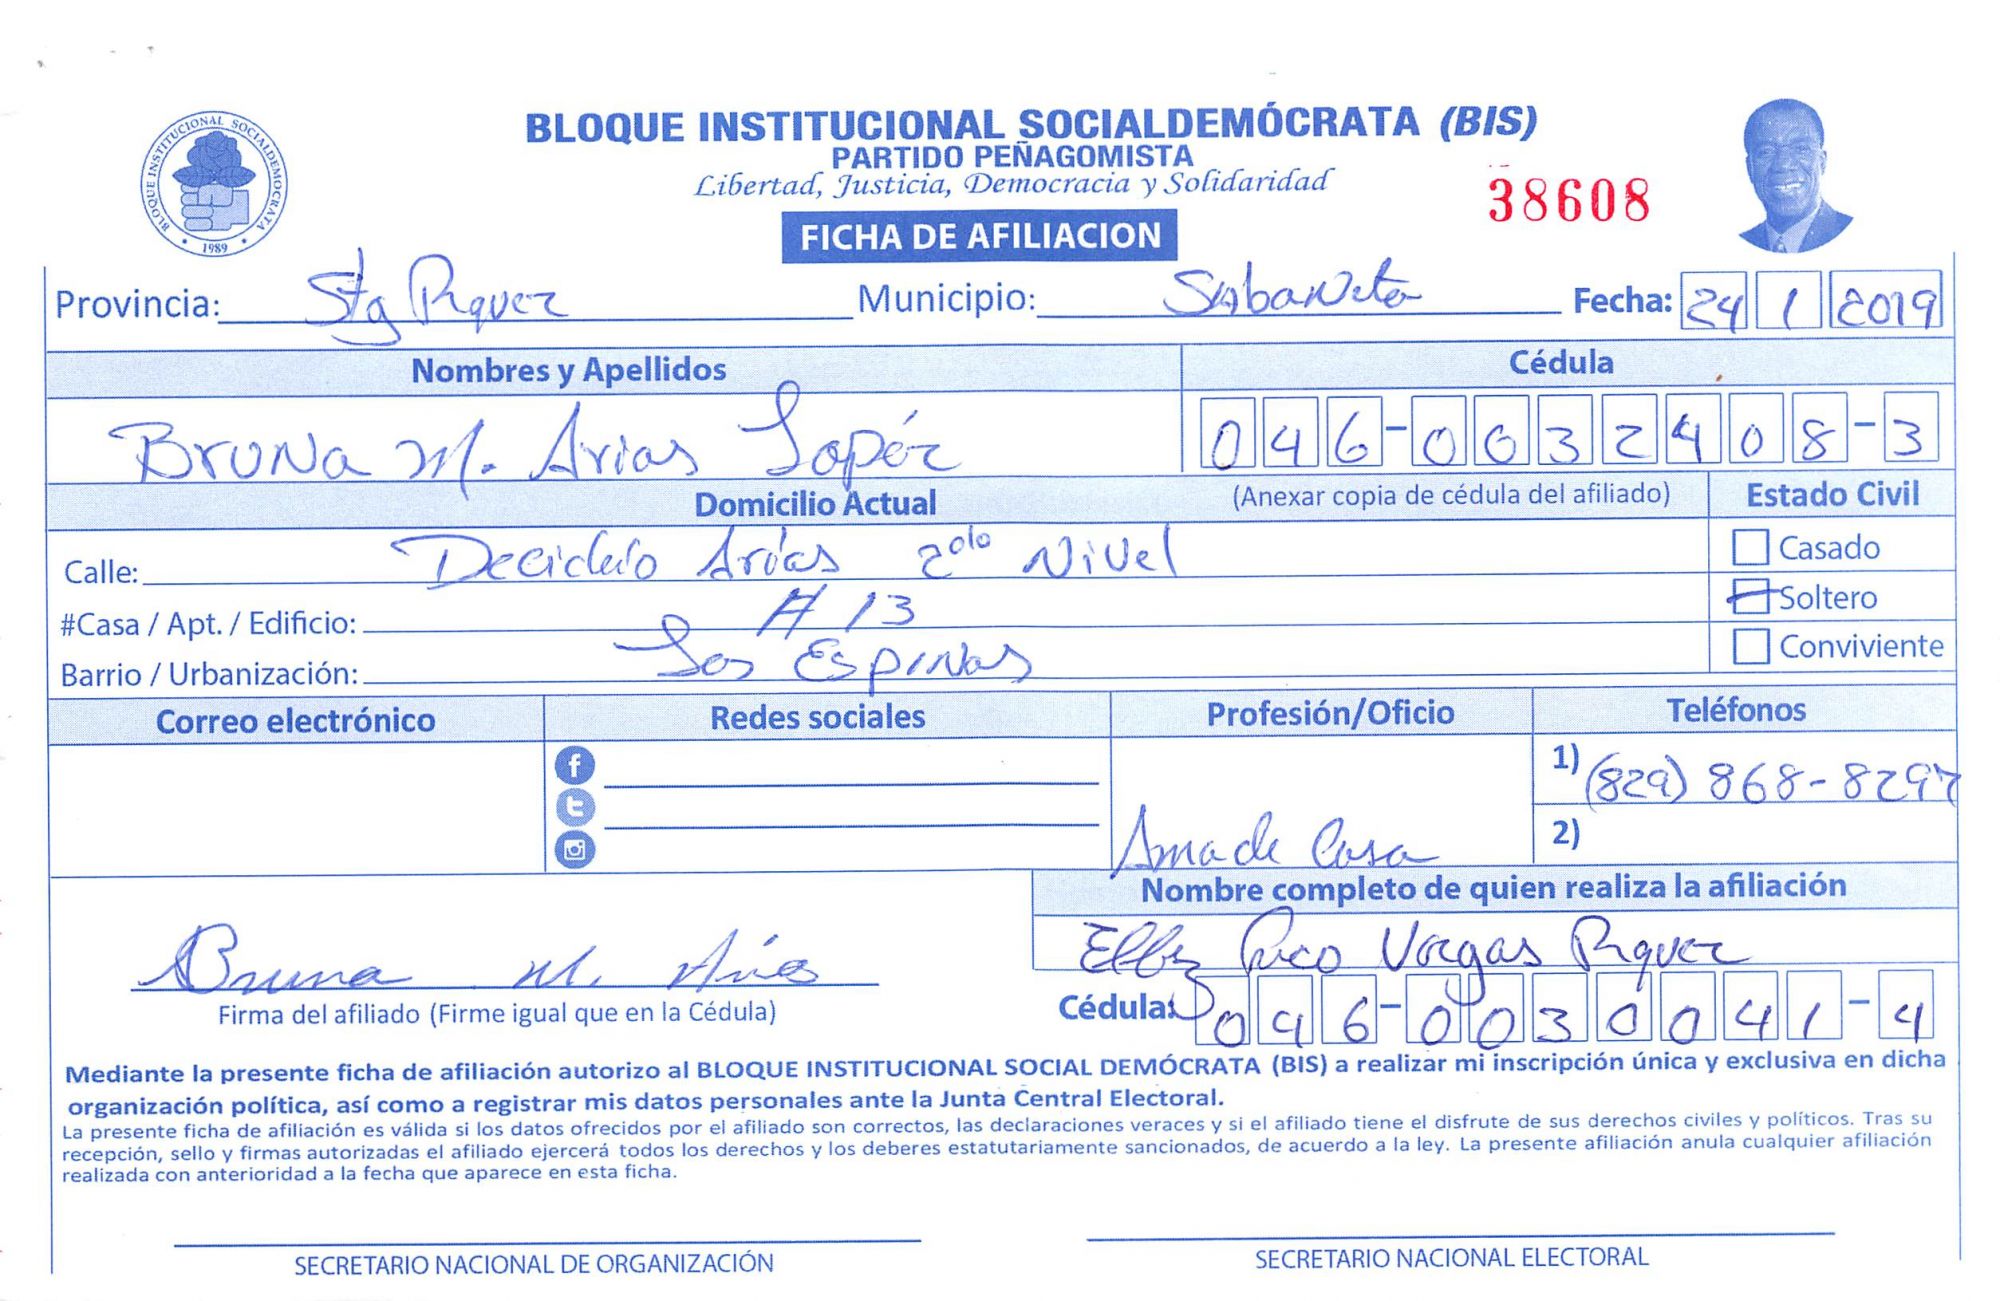 BLOQUE INSTITUCIONAL SOCIALDEMÓCRATA (BIS)
PARTIDO PEÑAGOMISTA
Libertad, Justicia, Democracia y Solidaridad
38608
BLOQUE INSTITUCIONAL SOCIALDEMOCRATA
1989
FICHA DE AFILIACION
Provincia: Stg Rguez Municipio: SabaNeta Fecha: 24 1 2019
Nombres y Apellidos Cédula
BruNa M. Arias Lopéz 046-0032408-3
Domicilio Actual (Anexar copia de cédula del afiliado) Estado Civil
Calle: Arias 2do Nivel Casado
#Casa / Apt. / Edificio: # 13 Soltero
Barrio / Urbanización: Los EspiNas Conviviente
Correo electrónico Redes sociales Profesión/Oficio Teléfonos
1) (829) 868-8297
2)
Ama de Casa
Nombre completo de quien realiza la afiliación
Vargas Rguez
Bruna M. Arias
Firma del afiliado (Firme igual que en la Cédula) Cédula: 046-0030041-4
Mediante la presente ficha de afiliación autorizo al BLOQUE INSTITUCIONAL SOCIAL DEMÓCRATA (BIS) a realizar mi inscripción única y exclusiva en dicha
organización política, así como a registrar mis datos personales ante la Junta Central Electoral.
La presente ficha de afiliación es válida si los datos ofrecidos por el afiliado son correctos, las declaraciones veraces y si el afiliado tiene el disfrute de sus derechos civiles y políticos. Tras su
recepción, sello y firmas autorizadas el afiliado ejercerá todos los derechos y los deberes estatutariamente sancionados, de acuerdo a la ley. La presente afiliación anula cualquier afiliación
realizada con anterioridad a la fecha que aparece en esta ficha.
SECRETARIO NACIONAL DE ORGANIZACIÓN SECRETARIO NACIONAL ELECTORAL